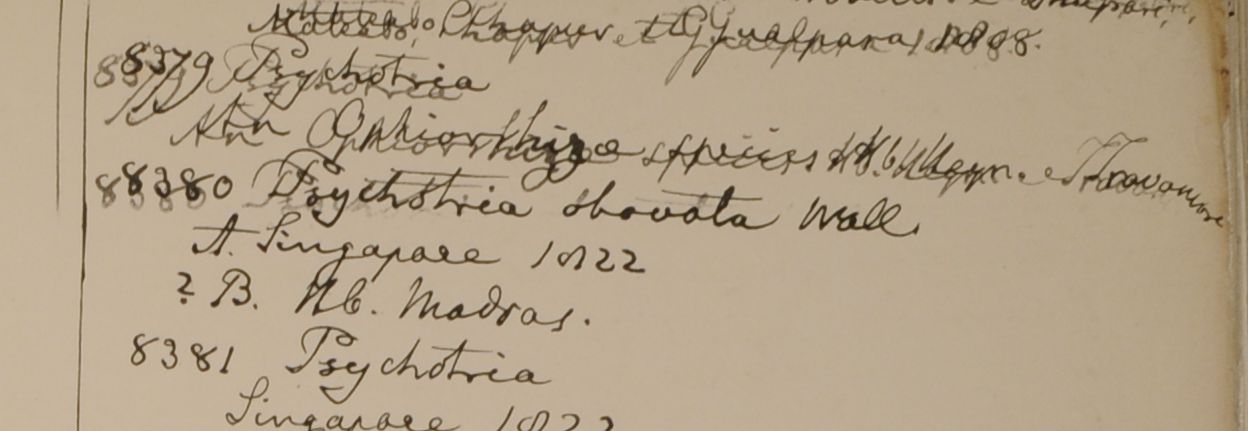 Chappur et Gualpara, 1808.
8379 Psychotria
An Ophiorrhizae species Hb. Travancore
8380 Psychotria obovata Wall.
A. Singapore 1822
? B. Hb. Madras.
8381 Psychotria
Singapore 1822